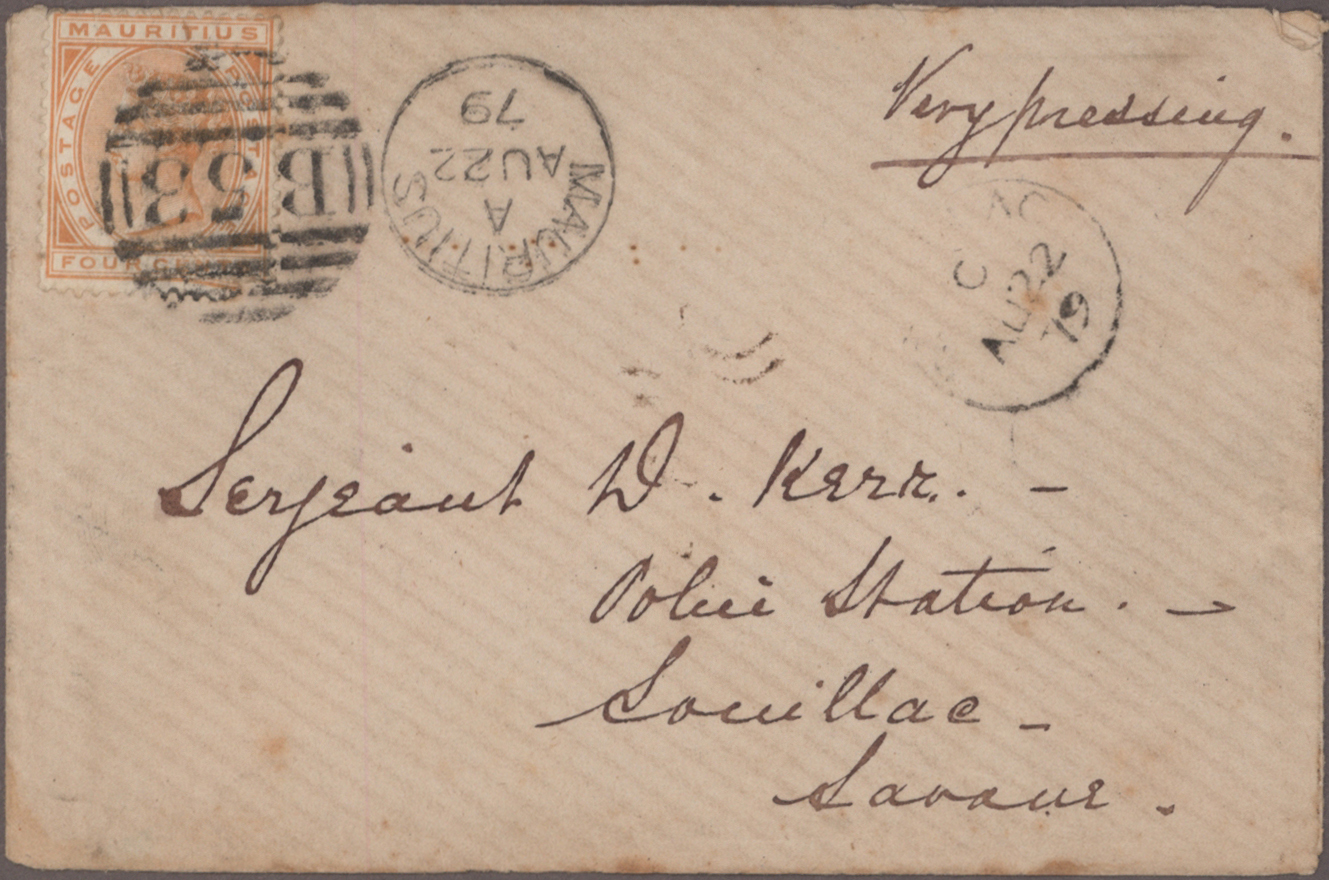 MAURITIUS
POSTAGE
POSTAGE
FOUR CENTS
B 53
MAURITIUS
A
AU 22
79
Very pressing.
AU 22
79
Serjeant D. Kerr. -
Police Station. -
Souillac -
Savane.